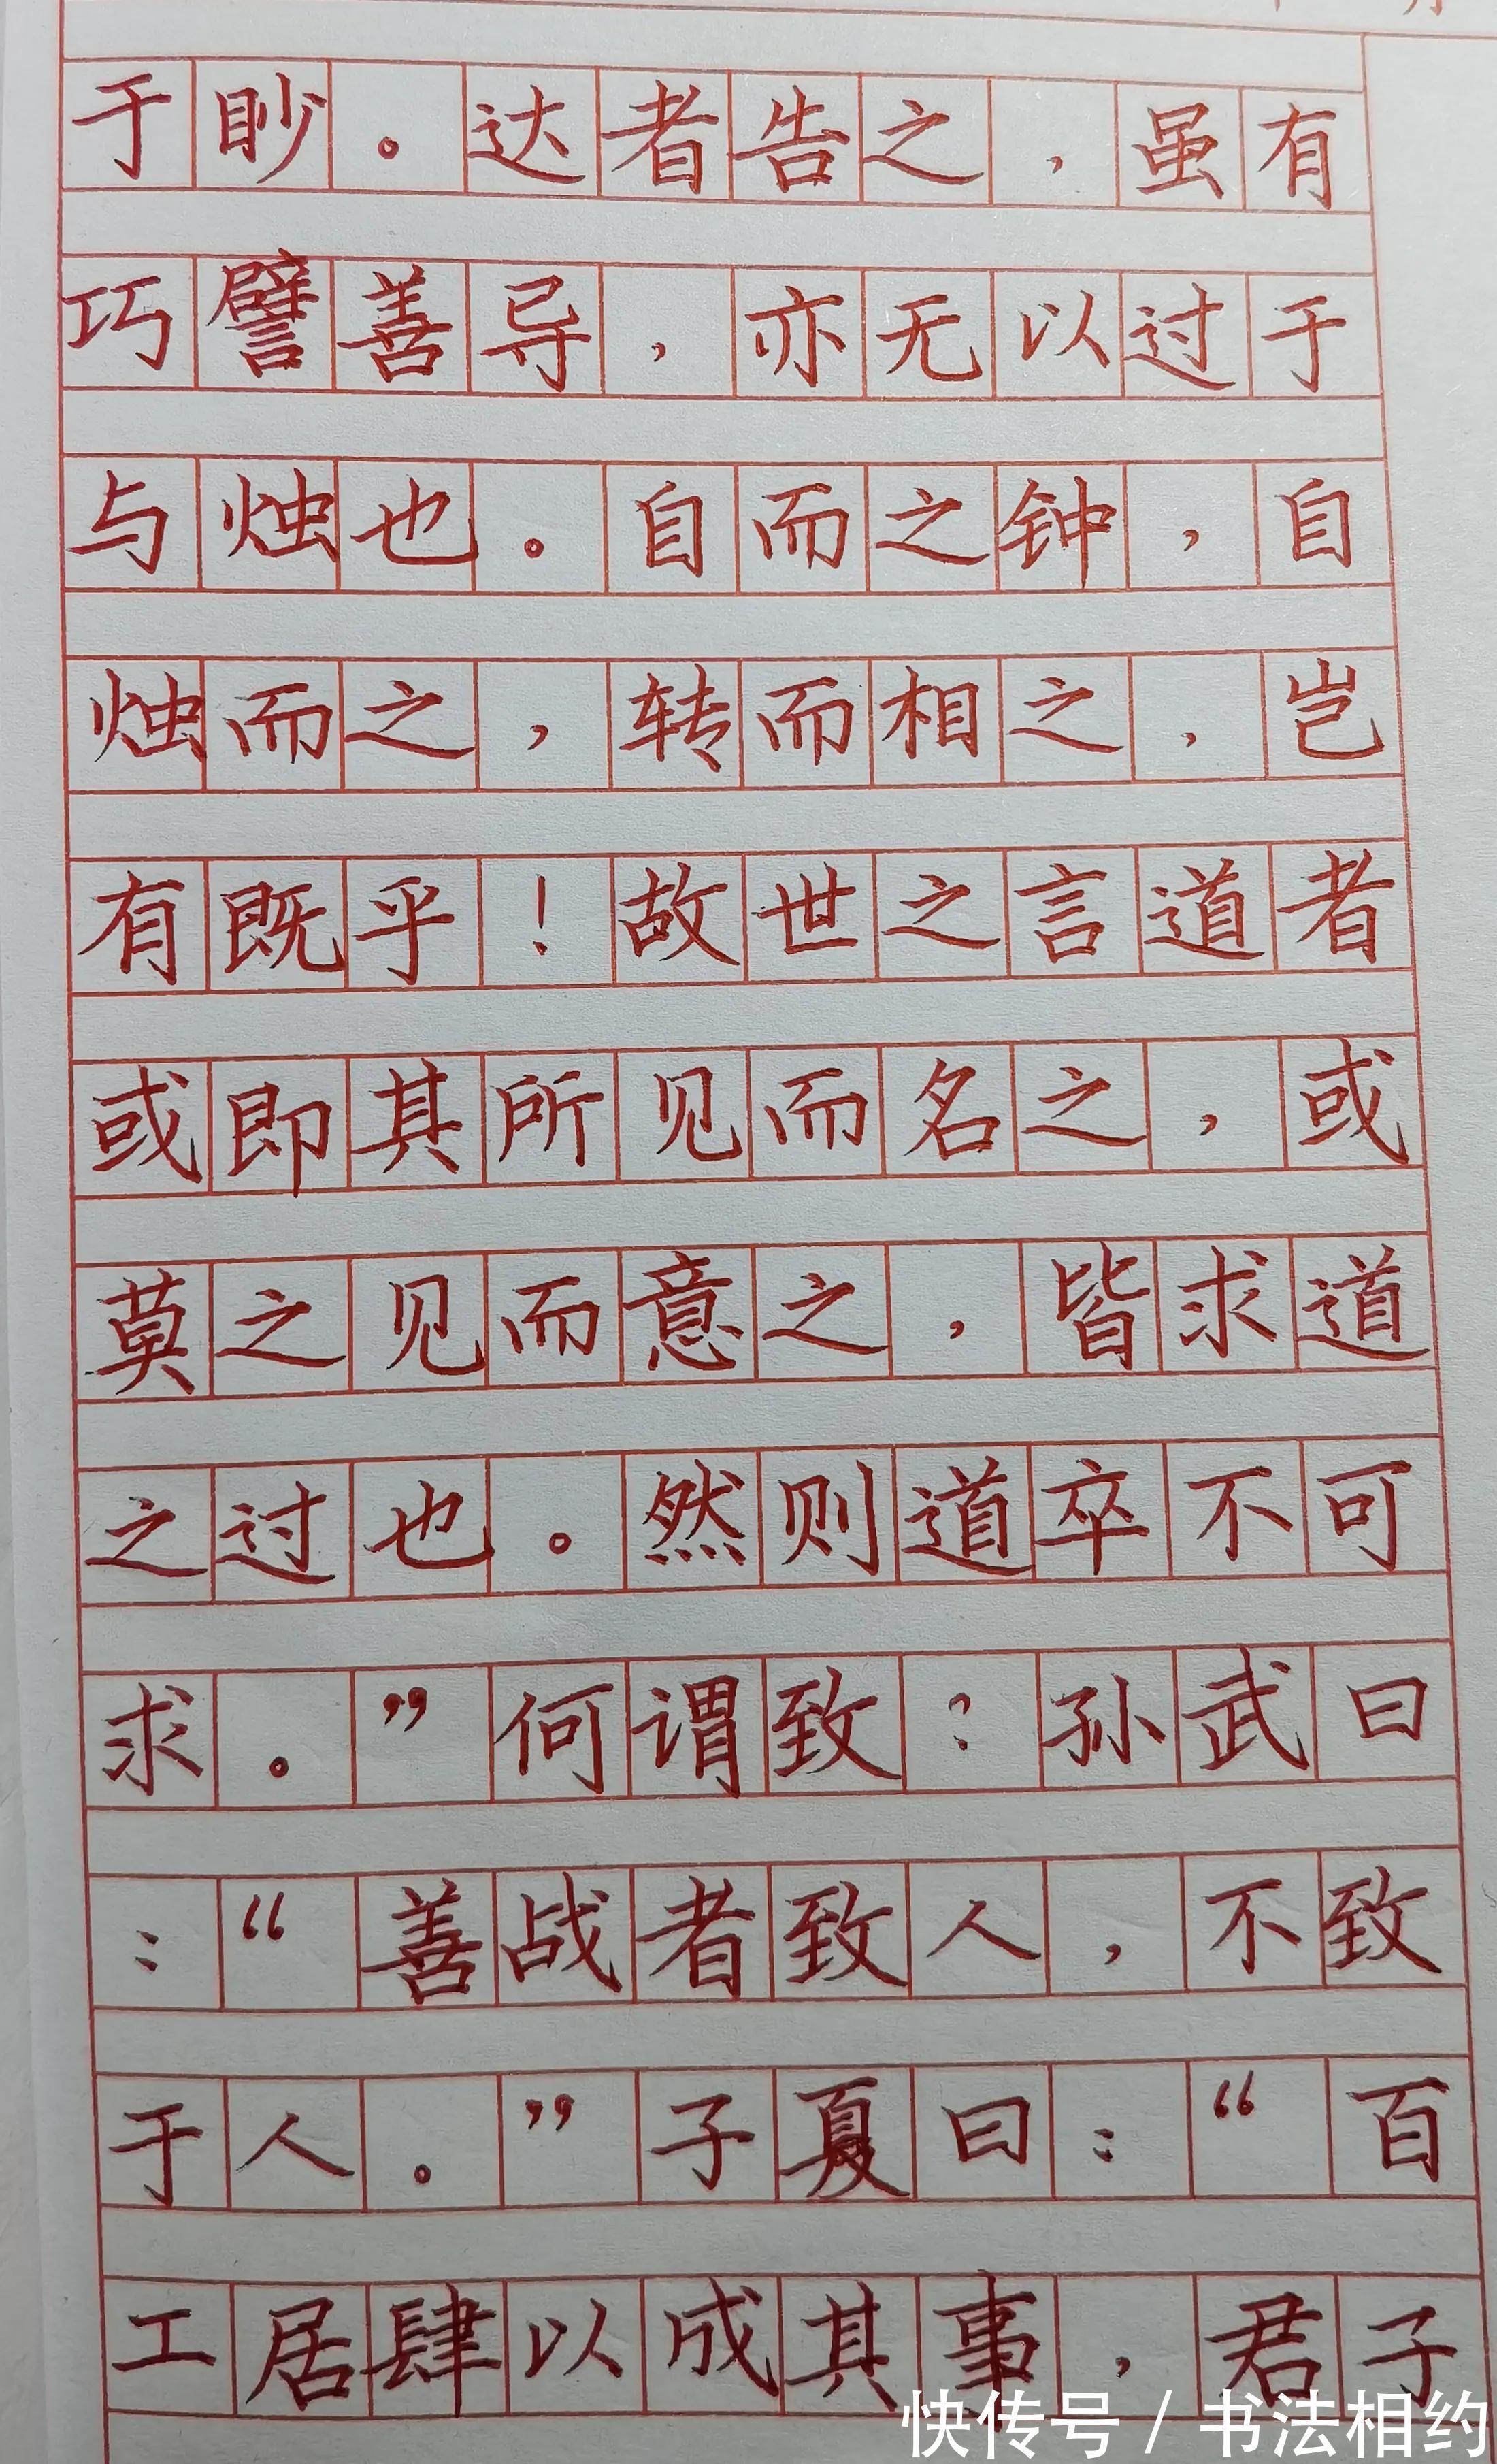 于眇。达者告之，虽有
巧譬善导，亦无以过于
与烛也。自而之钟，自
烛而之，转而相之，岂
有既乎！故世之言道者
或即其所见而名之，或
莫之见而意之，皆求道
之过也。然则道卒不可
求。”何谓致？孙武曰
：“善战者致人，不致
于人。”子夏曰：“百
工居肆以成其事，君子
快传号/书法相约